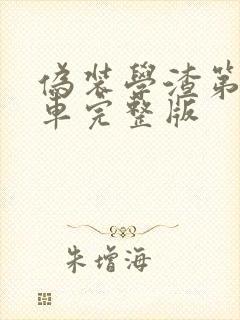 偽裝學渣第
車完整版
朱增海